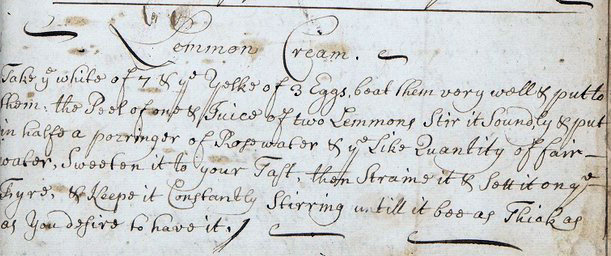 Lemmon Cream.
Take ye white of 7 & ye Yelke of 3 Eggs, beat them very well & put to
them, the Peel of one & Juice of two Lemmons Stir it Soundly & put
in halfe a porringer of Rosewater & ye Like Quantity of fair
water, Sweeten it to your Tast, then Straine it & Sett it on ye
Fyre, & Keepe it Constantly Stirring untill it bee as Thick as
as You desire to have it.